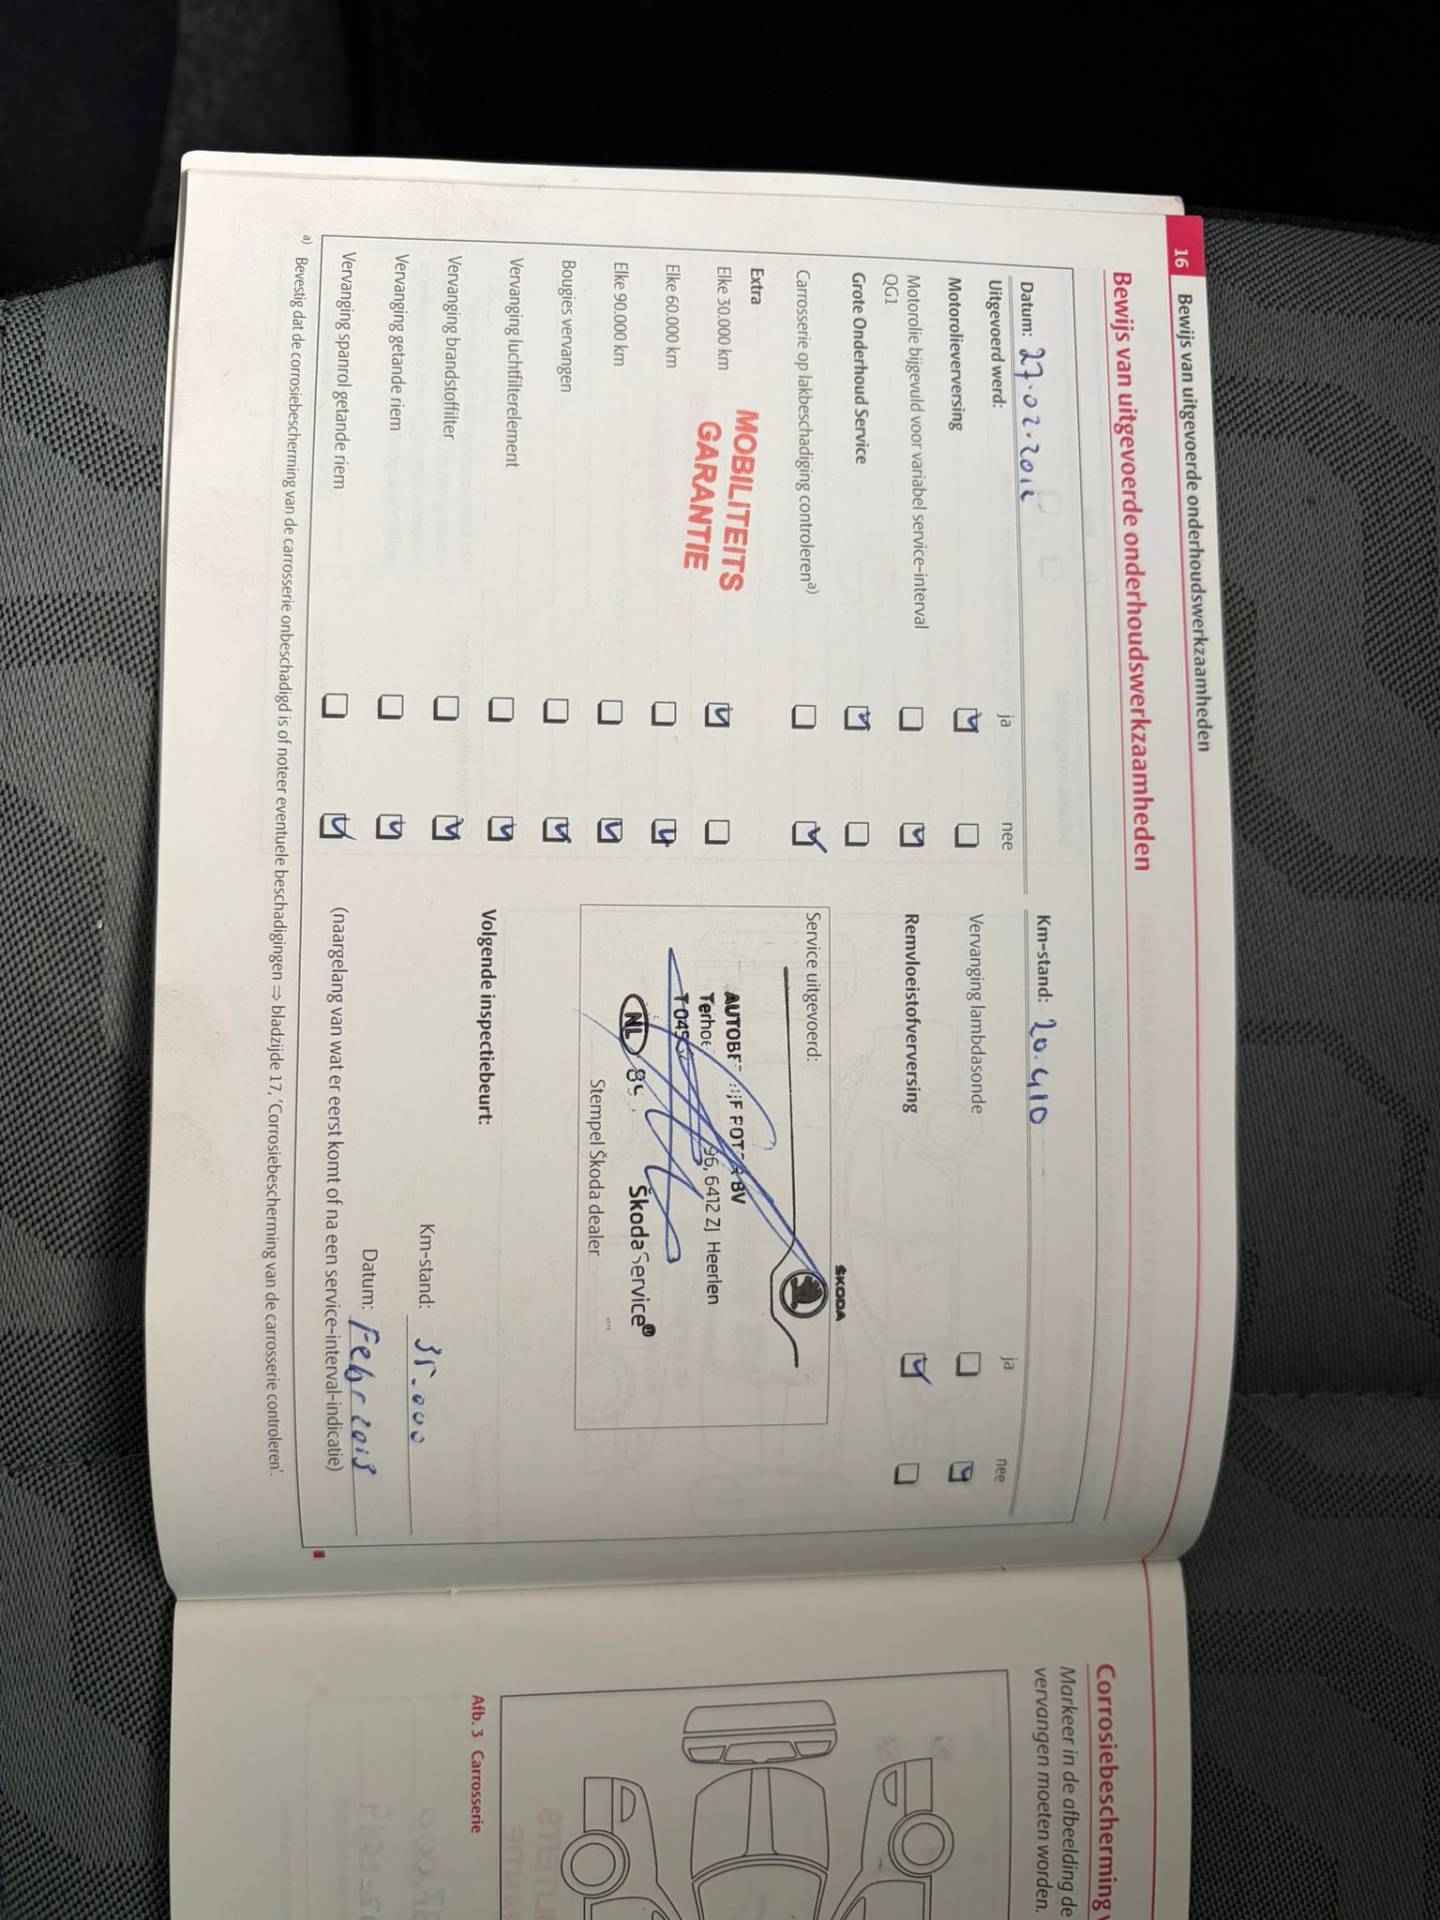 16 Bewijs van uitgevoerde onderhoudswerkzaamheden
Bewijs van uitgevoerde onderhoudswerkzaamheden
Datum: 27.02.2012
Km-stand: 20.410
Uitgevoerd werd:
ja
nee
ja
nee
Motorolieverversing
Vervanging lambdasonde
Motorolie bijgevuld voor variabel service-interval
QG1
Remvloeistofverversing
Grote Onderhoud Service
Carrosserie op lakbeschadiging controlerena)
Service uitgevoerd:
ŠKODA
Extra
Elke 30.000 km
MOBILITEITS
GARANTIE
Elke 60.000 km
Elke 90.000 km
Bougies vervangen
Vervanging luchtfilterelement
Vervanging brandstoffilter
Vervanging getande riem
Vervanging spanrol getande riem
BV
96, 6412 ZJ Heerlen
T 045
NL
Škoda Service®
Stempel Škoda dealer
Volgende inspectiebeurt:
Km-stand: 35.000
Datum: Febr 2013
(naargelang van wat er eerst komt of na een service-interval-indicatie)
a) Bevestig dat de corrosiebescherming van de carrosserie onbeschadigd is of noteer eventuele beschadigingen ⇒ bladzijde 17, 'Corrosiebescherming van de carrosserie controleren'.
Corrosiebescherming
Markeer in de afbeelding de
vervangen moeten worden.
Afb. 3 Carrosserie